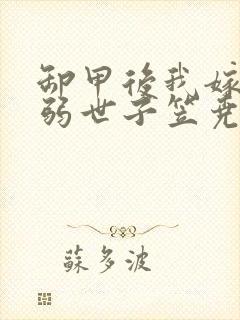 卸甲後我嫁
弱世子笠堯
蘇多波